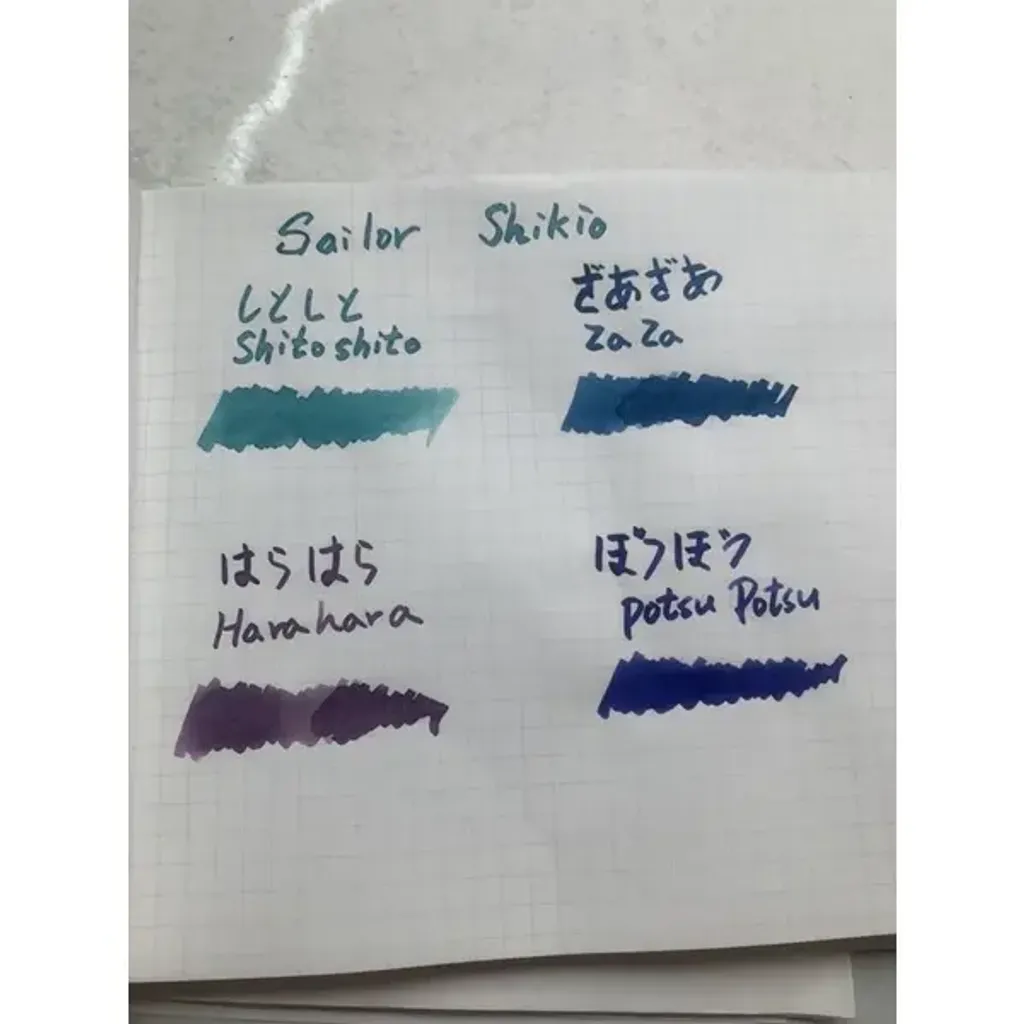 Sailor Shikio
しとしと
Shito shito
ざあざあ
Za Za
はらはら
Harahara
ぽつぽつ
Potsu Potsu